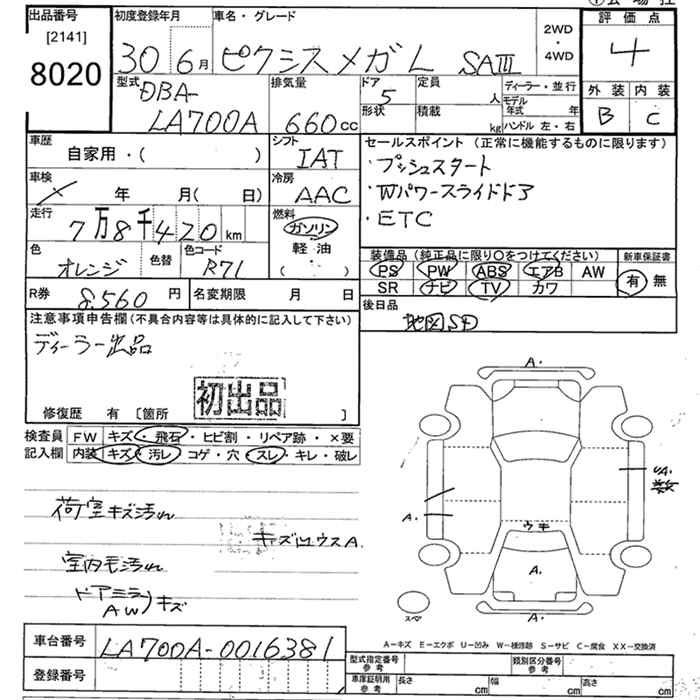 出品番号
[2141]
8020
初度登録年月
30 6月
車名・グレード
ピクシスメガ L SAⅢ
2WD
・
4WD
評価点
4
外装 内装
B C
型式
DBA-
LA700A
排気量
660cc
ドア
5
形状
定員
人
積載
kg
ディーラー・並行
モデル年式 年
ハンドル 左・右
車歴
自家用・( )
シフト
IAT
車検
年 月( 日)
冷房
AAC
走行
7万8千420km
燃料
ガソリン
軽・油
( )
色
オレンジ
色替
色コード
R71
R券 8,560円
名変期限 月 日
セールスポイント(正常に機能するものに限ります)
・プッシュスタート
・Wパワースライドドア
・ETC
装備品(純正品に限り○をつけてください)
PS PW ABS エアB AW
SR ナビ TV カワ
新車保証書
有・無
後日品
地図SD
注意事項申告欄(不具合内容等は具体的に記入して下さい)
ディーラー出品
初出品
修復歴 有 [箇所 ]
検査員記入欄
FW キズ・飛石・ヒビ割・リペア跡・×要
内装 キズ・汚レ コゲ・穴・スレ・キレ・破レ
荷室キズ汚れ
室内毛汚れ
ドアミラー
AW
キズ
A.
A.
ウキ
A.
A.
スペア
A-キズ E-エクボ U-凹み W-補修跡 S-サビ C-腐食 XX-交換済
車台番号 LA700A-0016381
登録番号
型式指定番号参考
類別区分番号参考
車庫証明用参考
長さ cm 幅 cm 高さ cm